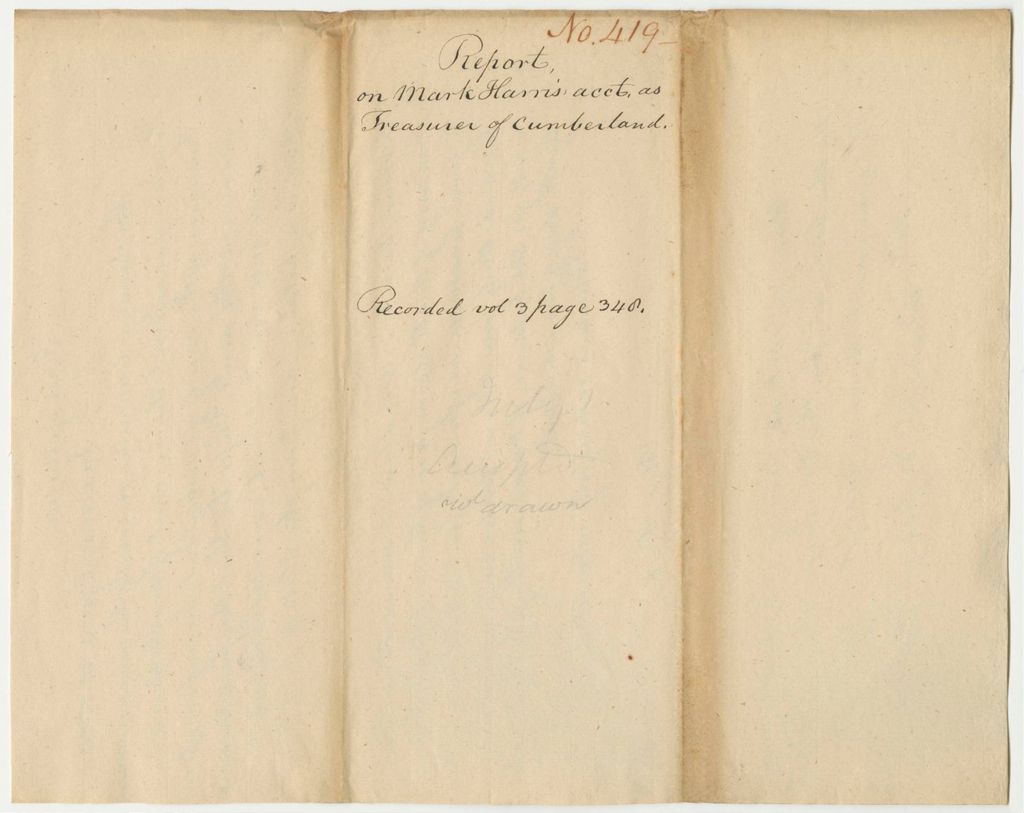 No. 419-
Report,
on Mark Harris' acct, as
Treasurer of Cumberland.
Recorded vol 3 page 348.
July 1
Accepted
drawn